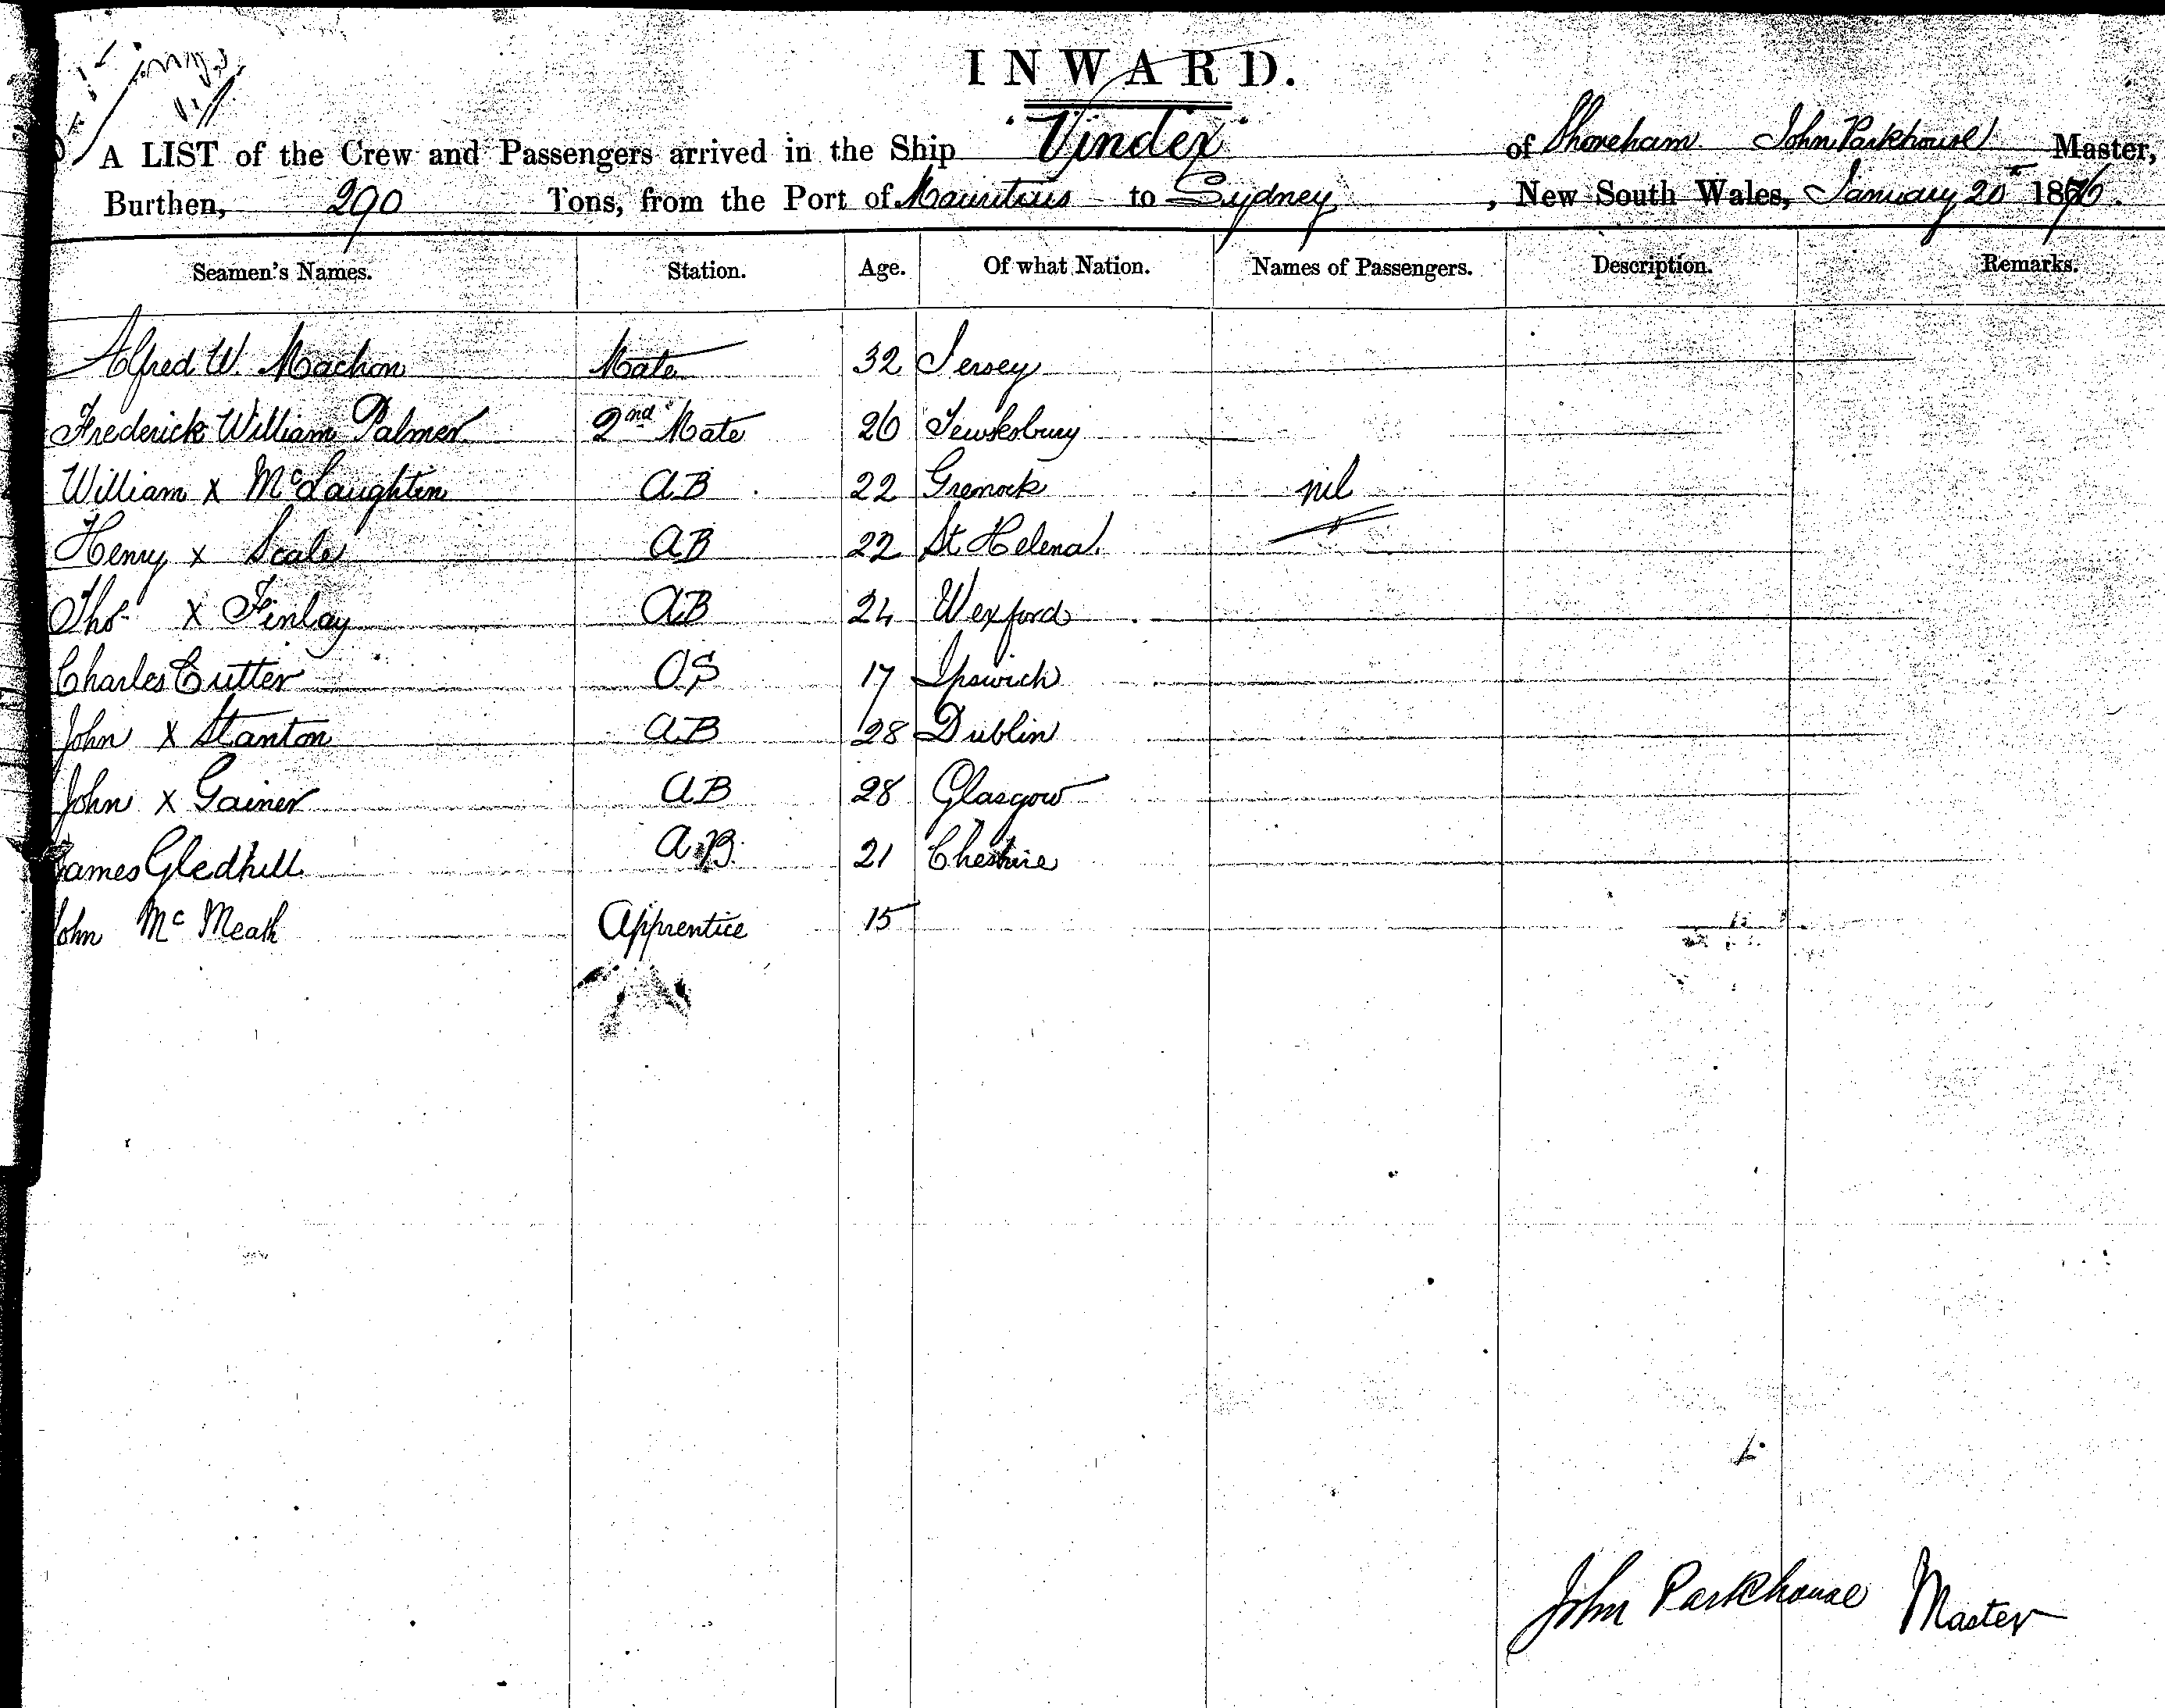 INWARD.
A LIST of the Crew and Passengers arrived in the Ship "Vindex" of Shoreham John Parkhouse Master,
Burthen, 290 Tons, from the Port of Mauritius to Sydney, New South Wales, January 20 1876.
Seamen's Names. Station. Age. Of what Nation. Names of Passengers. Description. Remarks.
Alfred W. Machon Mate 32 Jersey
Frederick William Palmer 2nd Mate 26 Tewksbury
William X McLaughtin AB 22 Grenock nil
Henry x Scale AB 22 St Helena
Thos X Finlay AB 24 Wexford
Charles Cutter OS 17 Ipswich
John X Stanton AB 28 Dublin
John X Gainer AB 28 Glasgow
James Gledhill AB. 21 Cheshire
John Mc Meath Apprentice 15
John Parkhouse Master